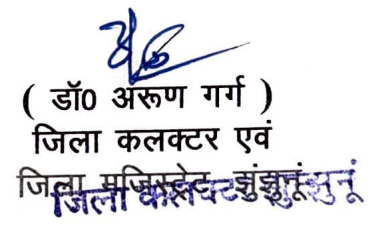 ( डॉ0 अरूण गर्ग )
जिला कलक्टर एवं
जिला मजिस्ट्रेट झुंझुनूं
जिला कलक्टर झुंझुनूं